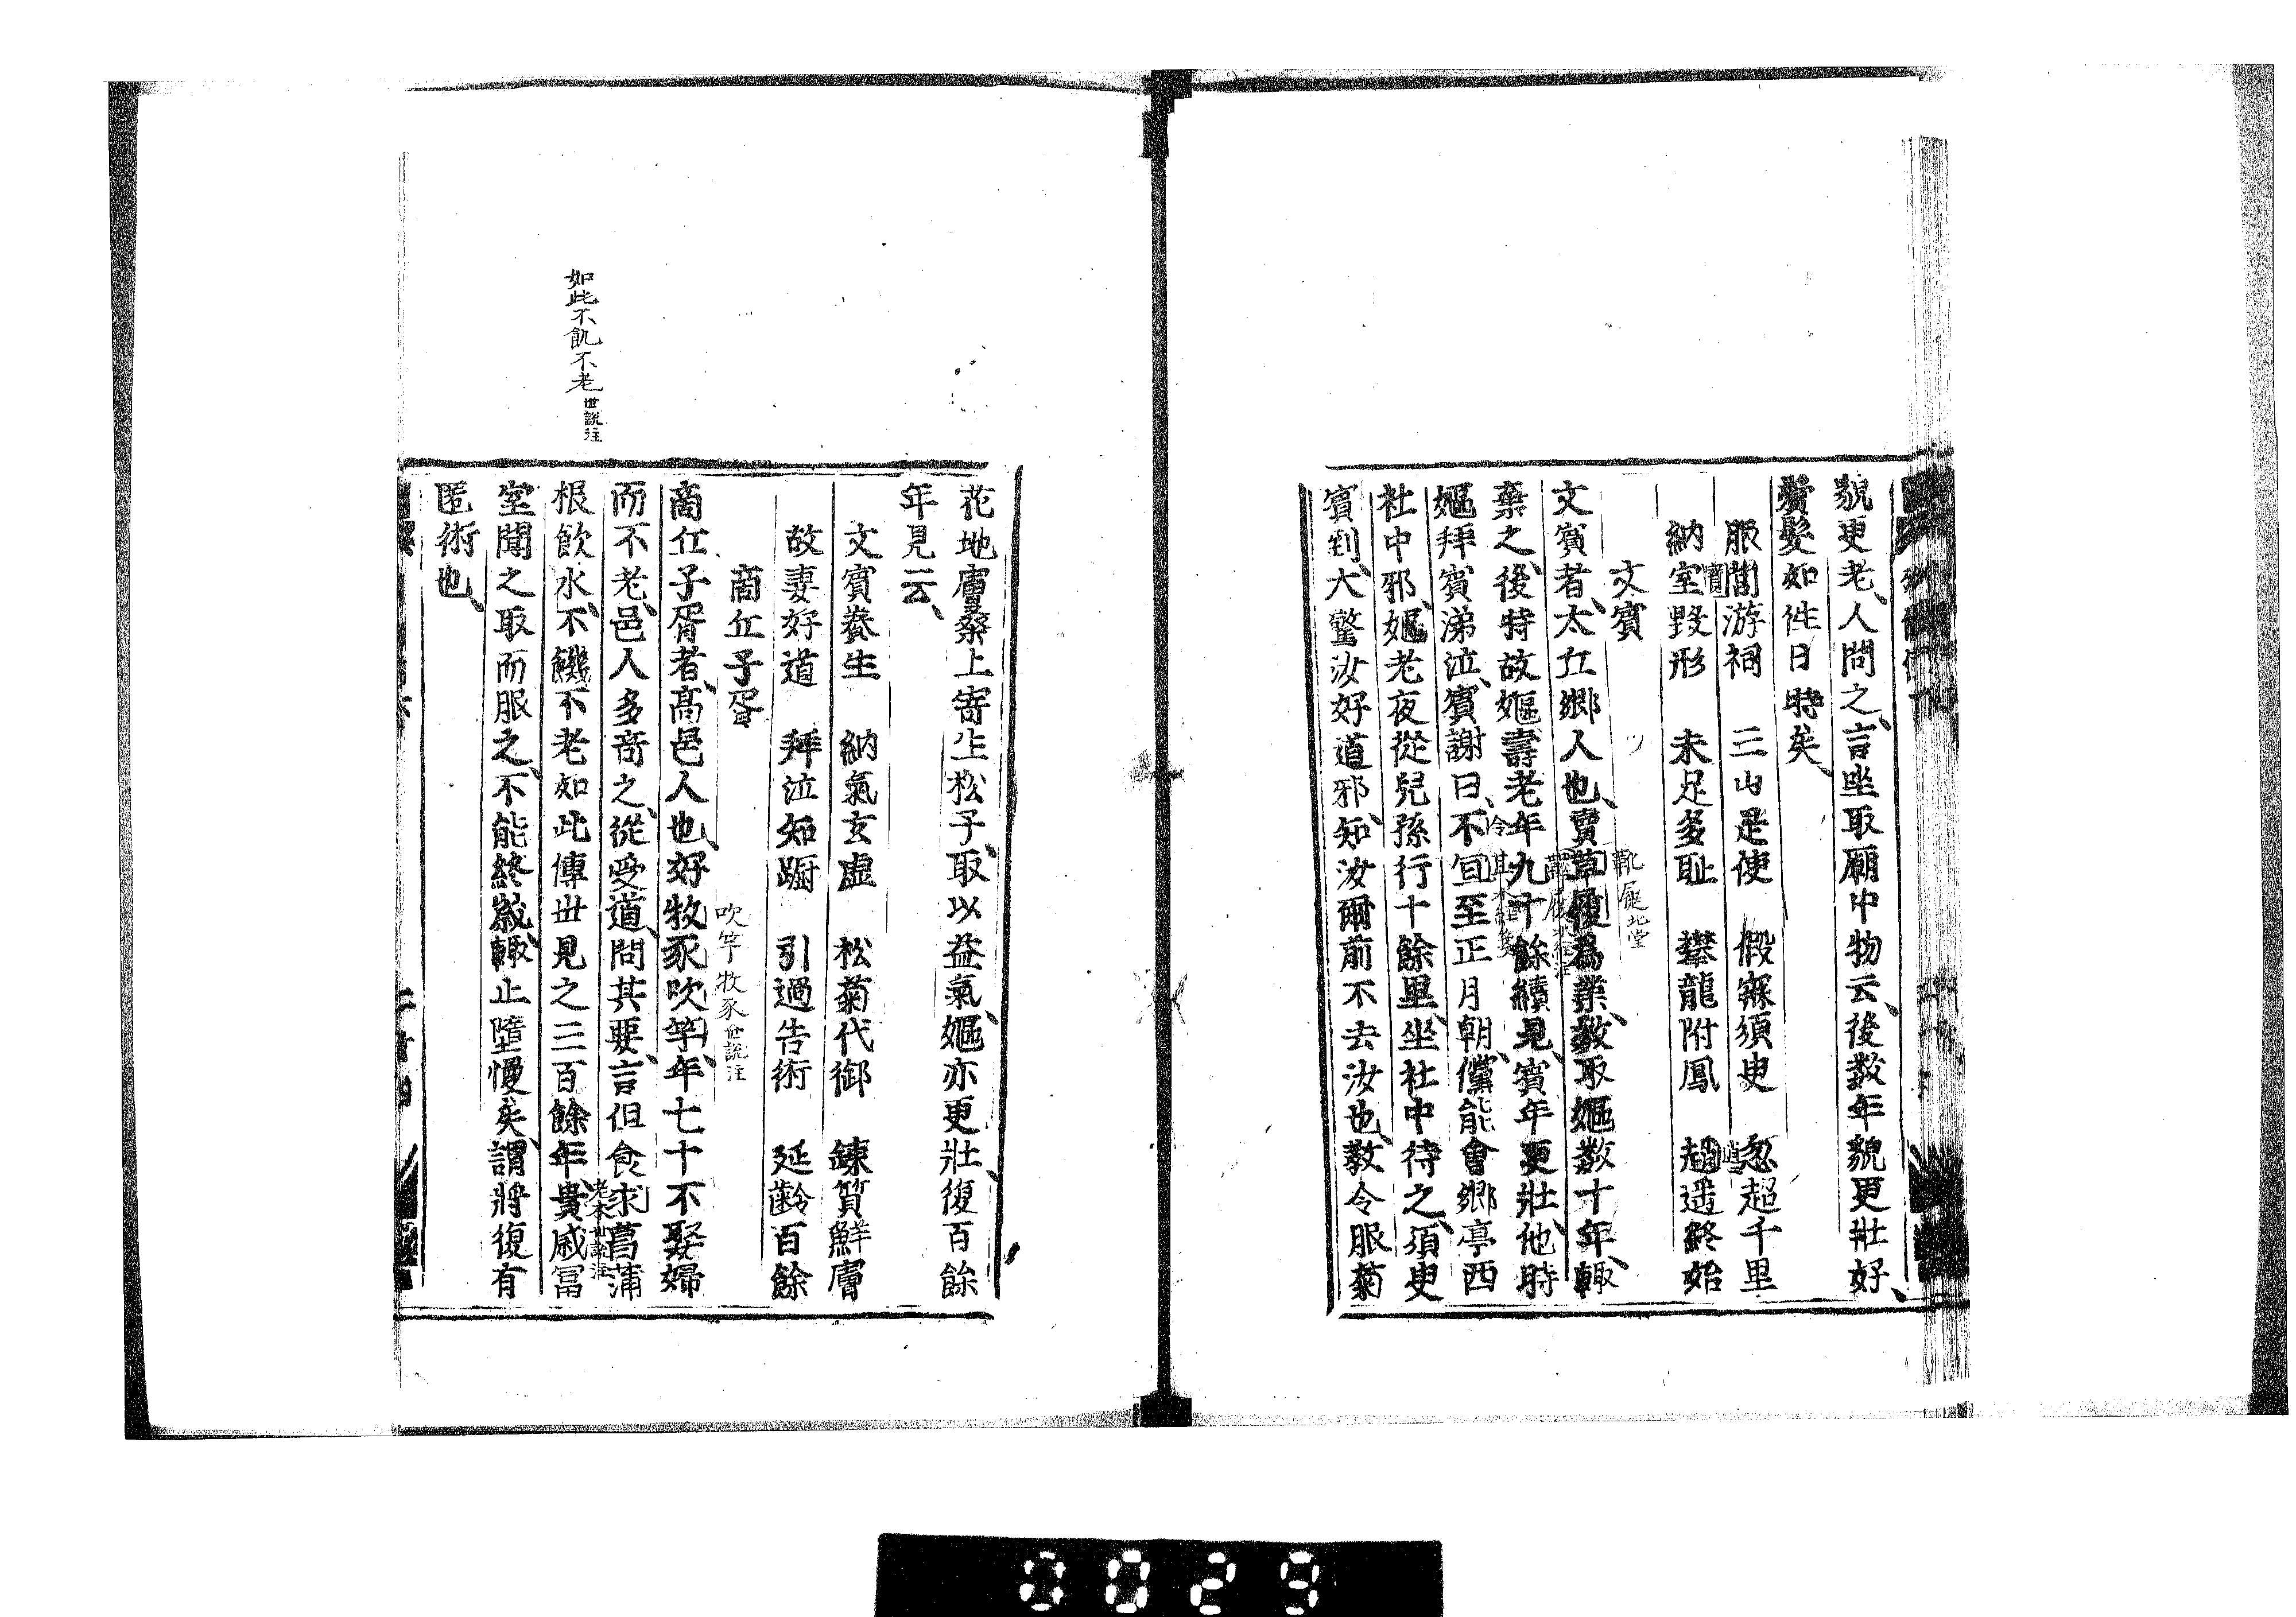 貌更老人問之言坐取廟中物云後数年貌更壯好
鬢髮如徃日時矣
服閭游祠　三山是使　假寐須臾　忽超千里
納寶毀形　未足多耻　攀龍附鳳　逍遥終始
文賓
靴屣北堂
文賓者太丘鄉人也賣草履爲業数取嫗数十年輙
棄之後時故嫗壽老年九十餘續見賓年更壯他時
嫗拜賓涕泣賓謝曰不宜至正月朝儻能會鄉亭西
社中邪嫗老夜從兒孫行十餘里坐社中待之須臾
賓到大驚汝好道邪知汝爾前不去汝也教令服菊
花地膚桑上寄生松子取以益氣嫗亦更壯復百餘
年見云
文賓養生　納氣玄虛　松菊代御　錬質鮮膚
故妻好道　拜泣如蹰　引過告術　延齡百餘
商丘子胥
吹竽牧豕世説注
商丘子胥者高邑人也好牧豕吹竽年七十不娶婦
而不老邑人多竒之從受道問其要言但食朮菖蒲
老朮世説注
根飲水不饑不老如此傳世見之三百餘年貴戚富
如此不飢不老世説注
室聞之取而服之不能終歲輙止墮慢矣謂將復有
匿術也
0029